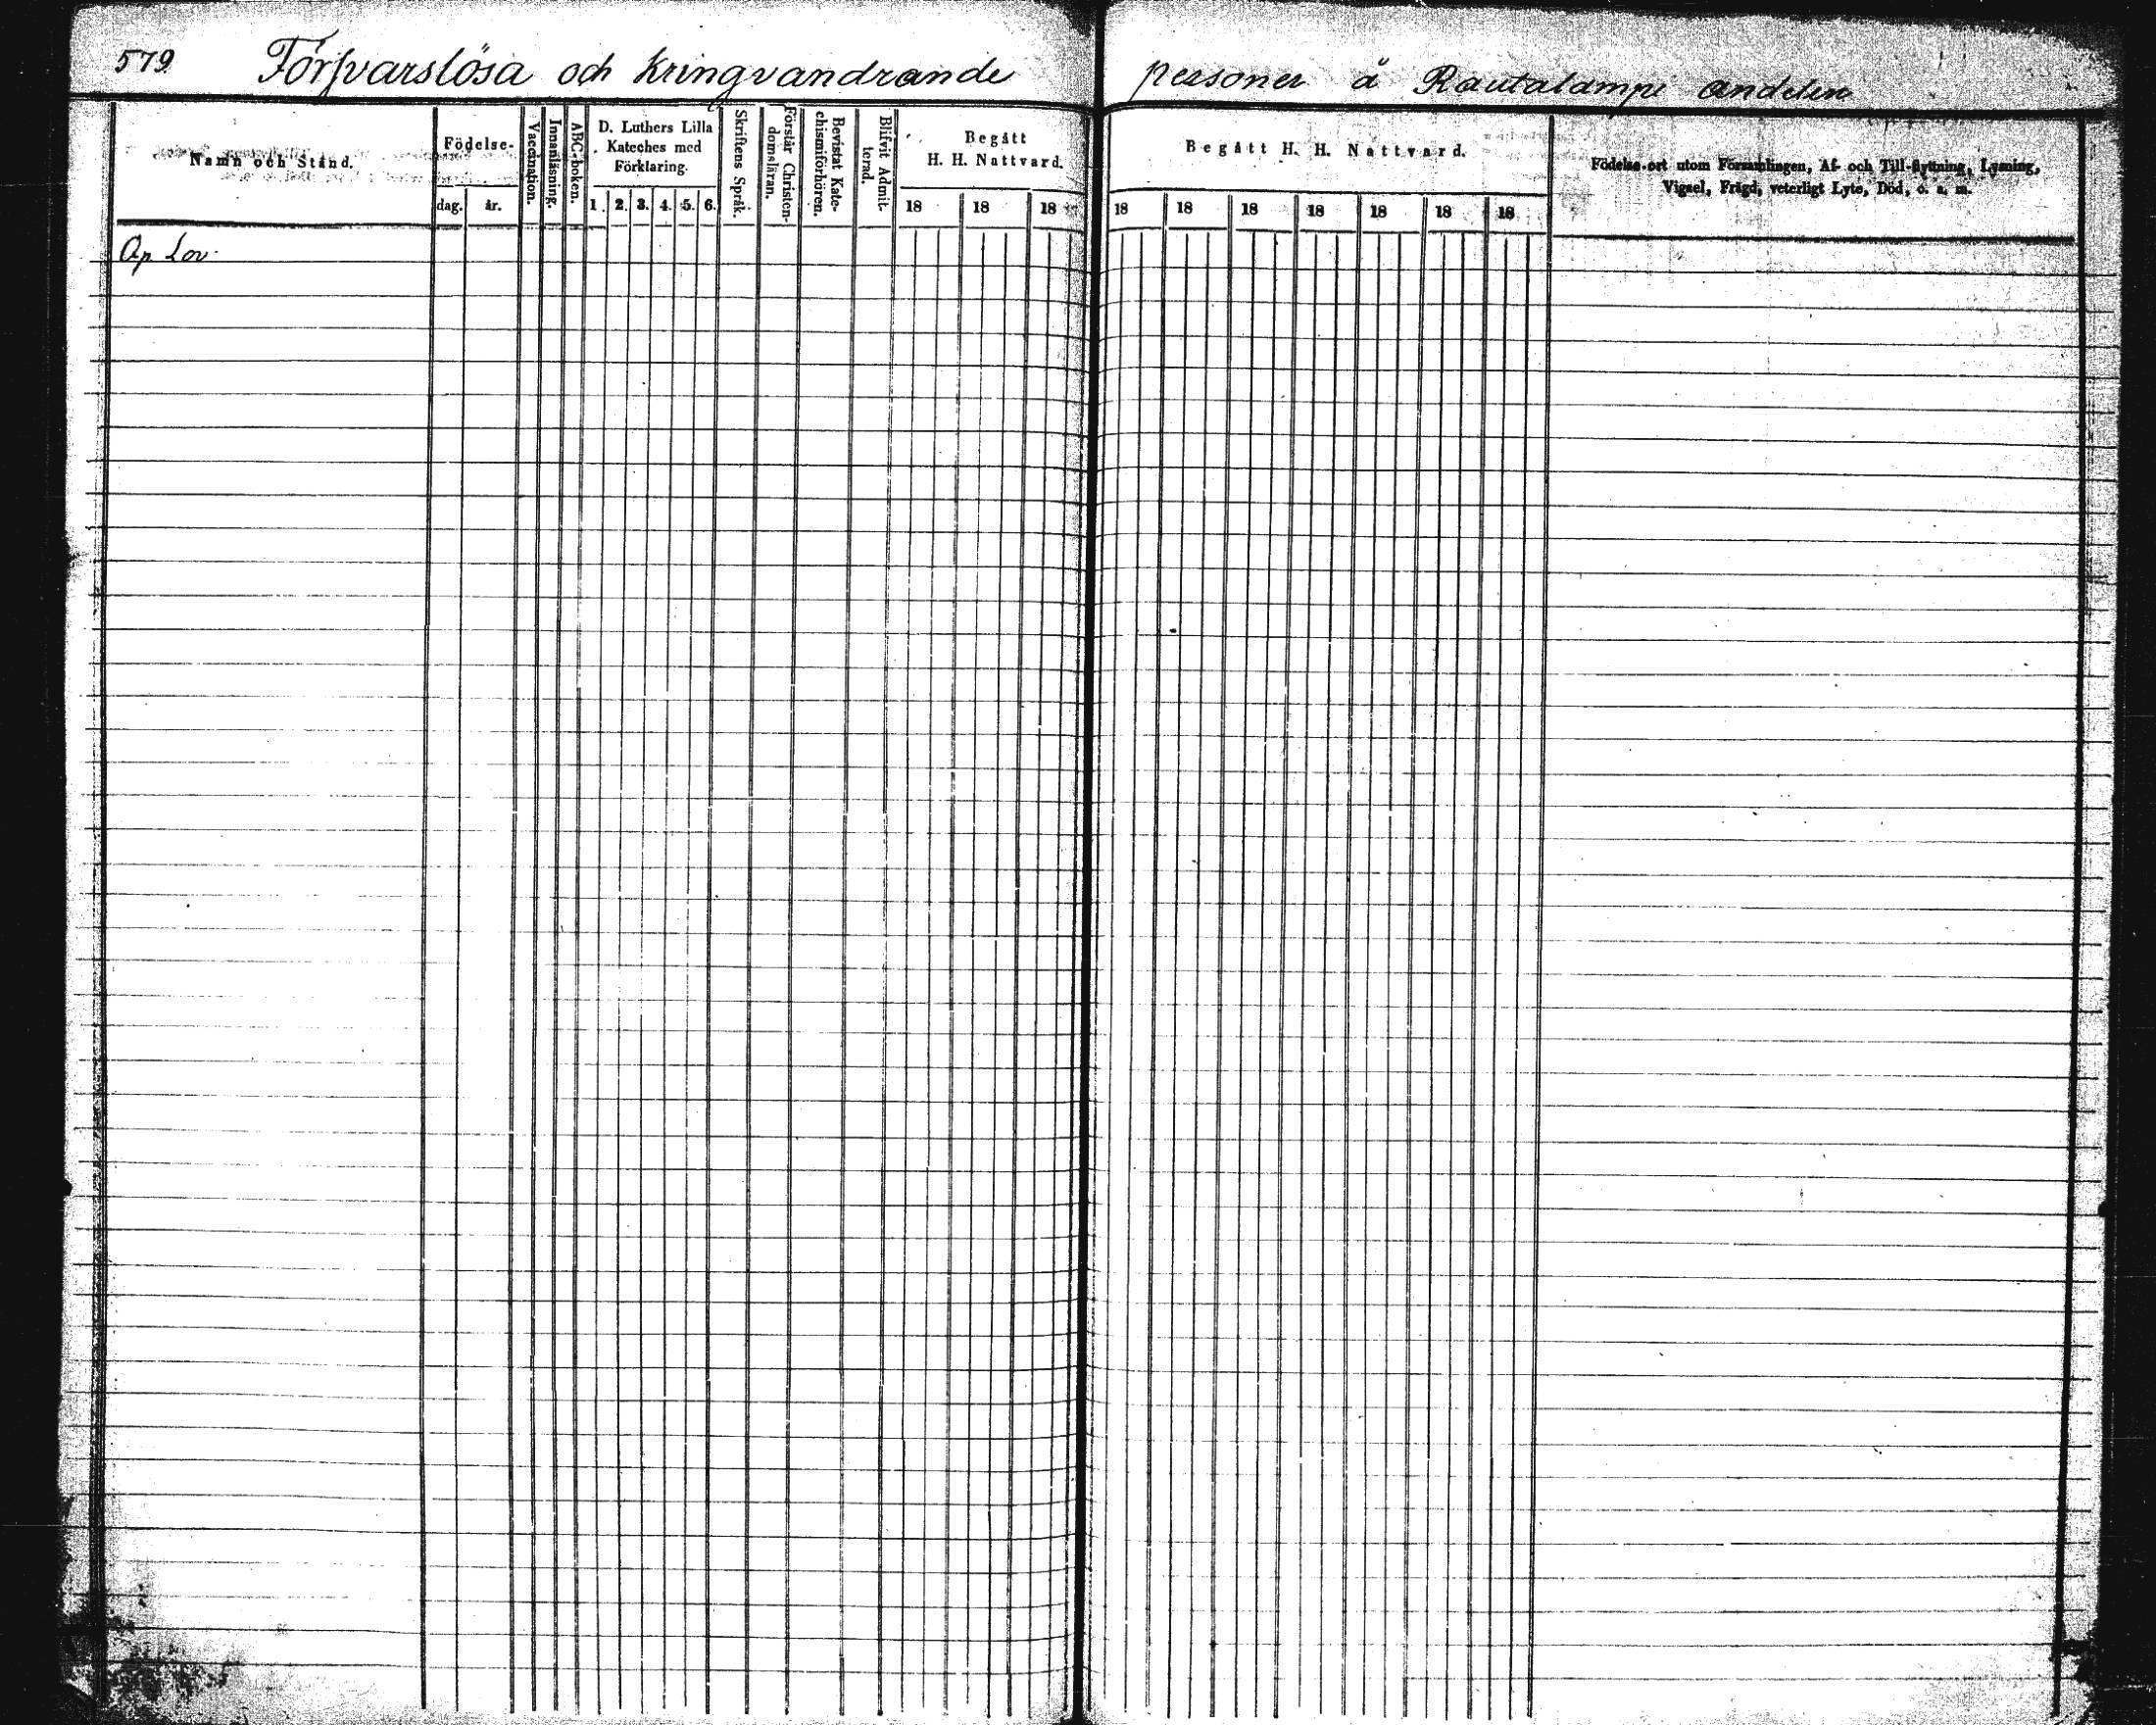 579 Försvarslösa och kringvandrande personer å Rautalampi andelen
Namn och Stånd.
Födelse-
dag.
år.
Vaccination.
Innanläsning.
ABC-boken.
D. Luthers Lilla
Kateches med
Förklaring.
1. 2. 3. 4. 5. 6.
Skriftens Språk.
Förstår Christen-
domsläran.
Bevistat Kate-
chismiförhören.
Blifvit Admit-
terad.
Begått
H. H. Nattvard.
18 18 18
Begått H. H. Nattvard.
18 18 18 18 18 18 18
Födelse-ort utom Församlingen, Af- och Till-flyttning, Lysning,
Vigsel, Frägd, veterligt Lyte, Död, o. s. m.
Ap Lov.